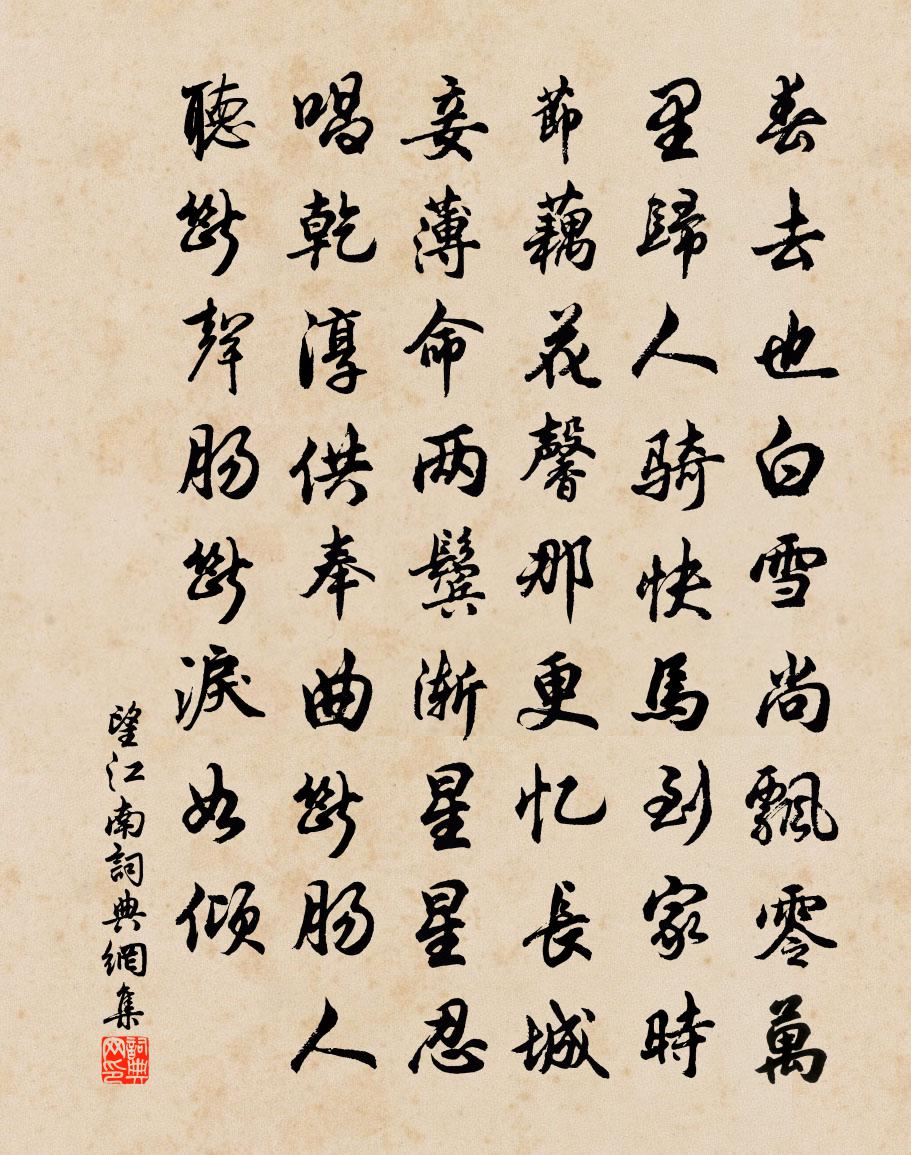 春去也白雪尚飄零萬
里歸人骑快馬到家時
節藕花馨那更忆長城
妾薄命两鬓渐星星忍
唱乾淳供奉曲斷肠人
聽斷聲肠斷淚如倾
望江南詞典網集
詞典网印